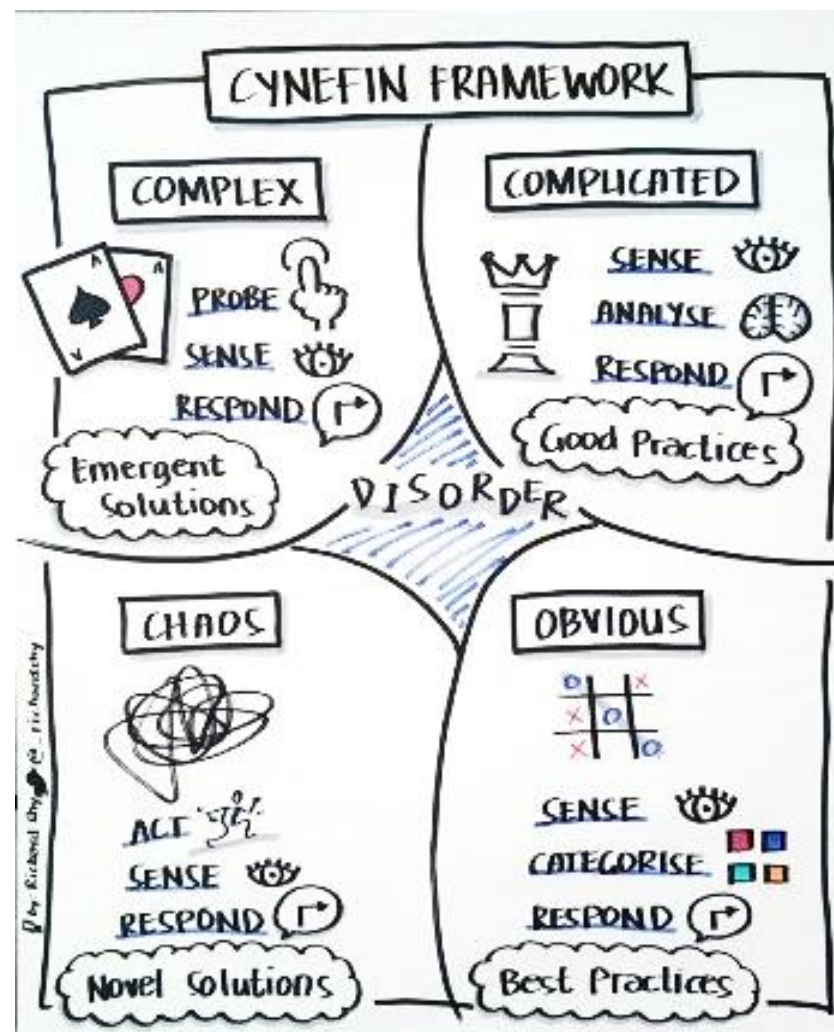 CYNEFIN FRAMEWORK
COMPLEX
A
A
A
PROBE
SENSE
RESPOND
Emergent
Solutions
COMPLICATED
SENSE
ANALYSE
RESPOND
Good Practices
DISORDER
CHAOS
ACT
SENSE
RESPOND
Novel Solutions
OBVIOUS
O X
X O
X O
SENSE
CATEGORISE
RESPOND
Best Practices
by Richard